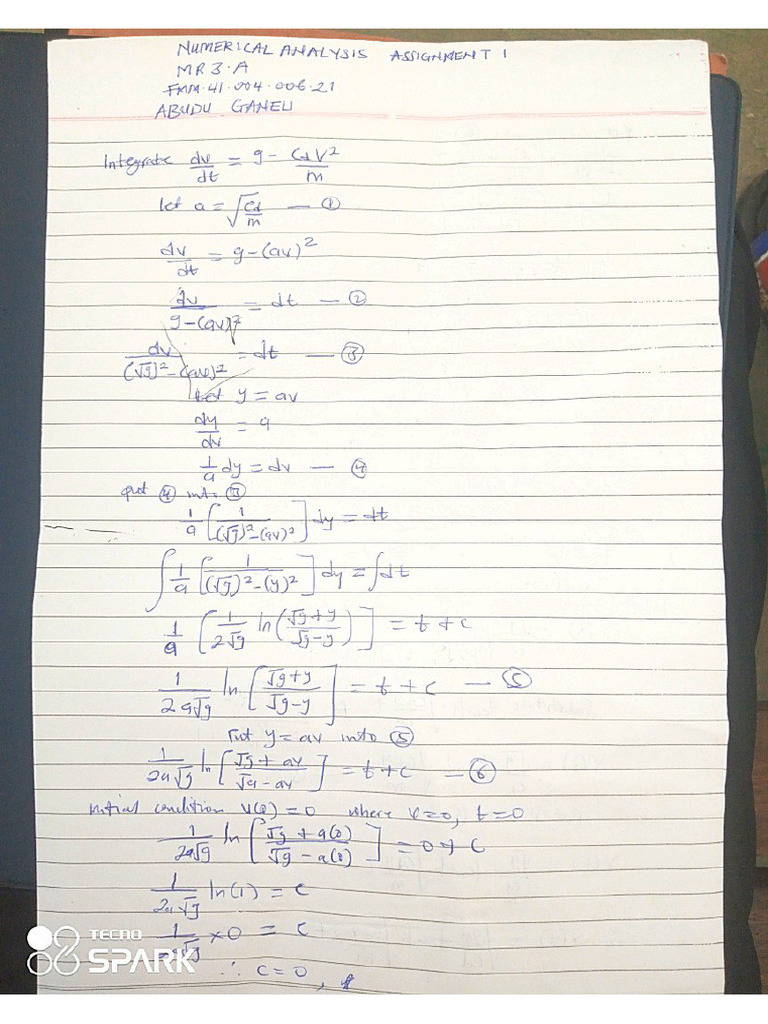 NUMERICAL ANALYSIS ASSIGNMENT 1
MR 3.A
FMM.41.004.006.21
ABUDU GANELI
Integrate dv/dt = g - CdV²/m
let a = √(Cd/m) — ①
dv/dt = g-(av)²
dv/(g-(av)²) = dt — ②
dv/((√g)²-(av)²) = dt — ③
Let y = av
dy/dv = a
1/a dy = dv — ④
put ④ into ③
1/a [1/((√g)²-(av)²)] dy = dt
∫ 1/a [1/((√g)²-(y)²)] dy = ∫dt
1/a [1/(2√g) ln((√g+y)/(√g-y))] = t + c
1/(2a√g) ln[(√g+y)/(√g-y)] = t + c — ⑤
Put y = av into ⑤
1/(2a√g) ln[(√g + av)/(√g - av)] = t + c — ⑥
initial condition V(0) = 0 where v=0, t=0
1/(2a√g) ln[(√g + a(0))/(√g - a(0))] = 0 + C
1/(2a√g) ln(1) = C
1/(2a√g) × 0 = C
∴ C = 0,
TECNO
SPARK